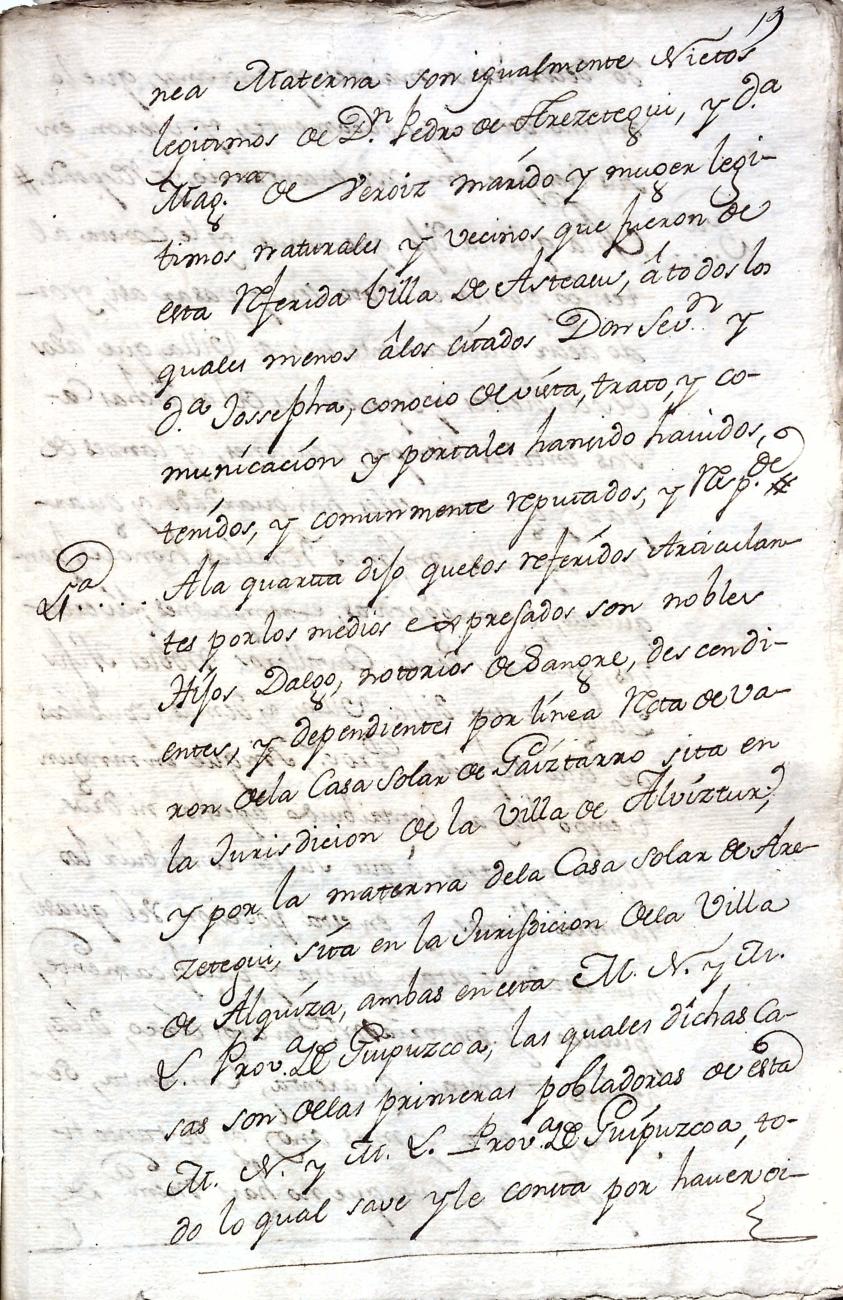 13
nea Materna son igualmente Nietos
legitimos de D.n Pedro de Arezetegui, y d.a
Mag.na de Veroiz marido y muger legi-
timos naturales y vecinos que fueron de
esta Referida Villa de Asteasu, â todos los
quales menos âlos citados Don Sev.n y
d.a Jossepha, conocio de vista, trato, y co-
municación y portales hansido havidos,
tenidos, y comunmente reputados, y Resp.de #
4.a... Ala quarta dijo quelos referidos Articulan-
tes por los medios expresados son nobles
Hijos Dalgo, notorios de Sangre, descendi-
entes, y dependientes por línea Recta de Va-
ron dela Casa Solar de Gaiztarro sita en
la Jurisdicion de la Villa de Alviztur,
y por la materna dela Casa solar de Are-
zetegui, sita en la Jurisdicion dela Villa
de Alquíza, ambas en esta M. N. y M.
L. Prov.a de Guipuzcoa, las quales dichas Ca-
sas son delas primeras pobladoras de esta
M. N. y M. L. Prov.a de Guipuzcoa, to-
do lo qual save y le consta por haver oi-